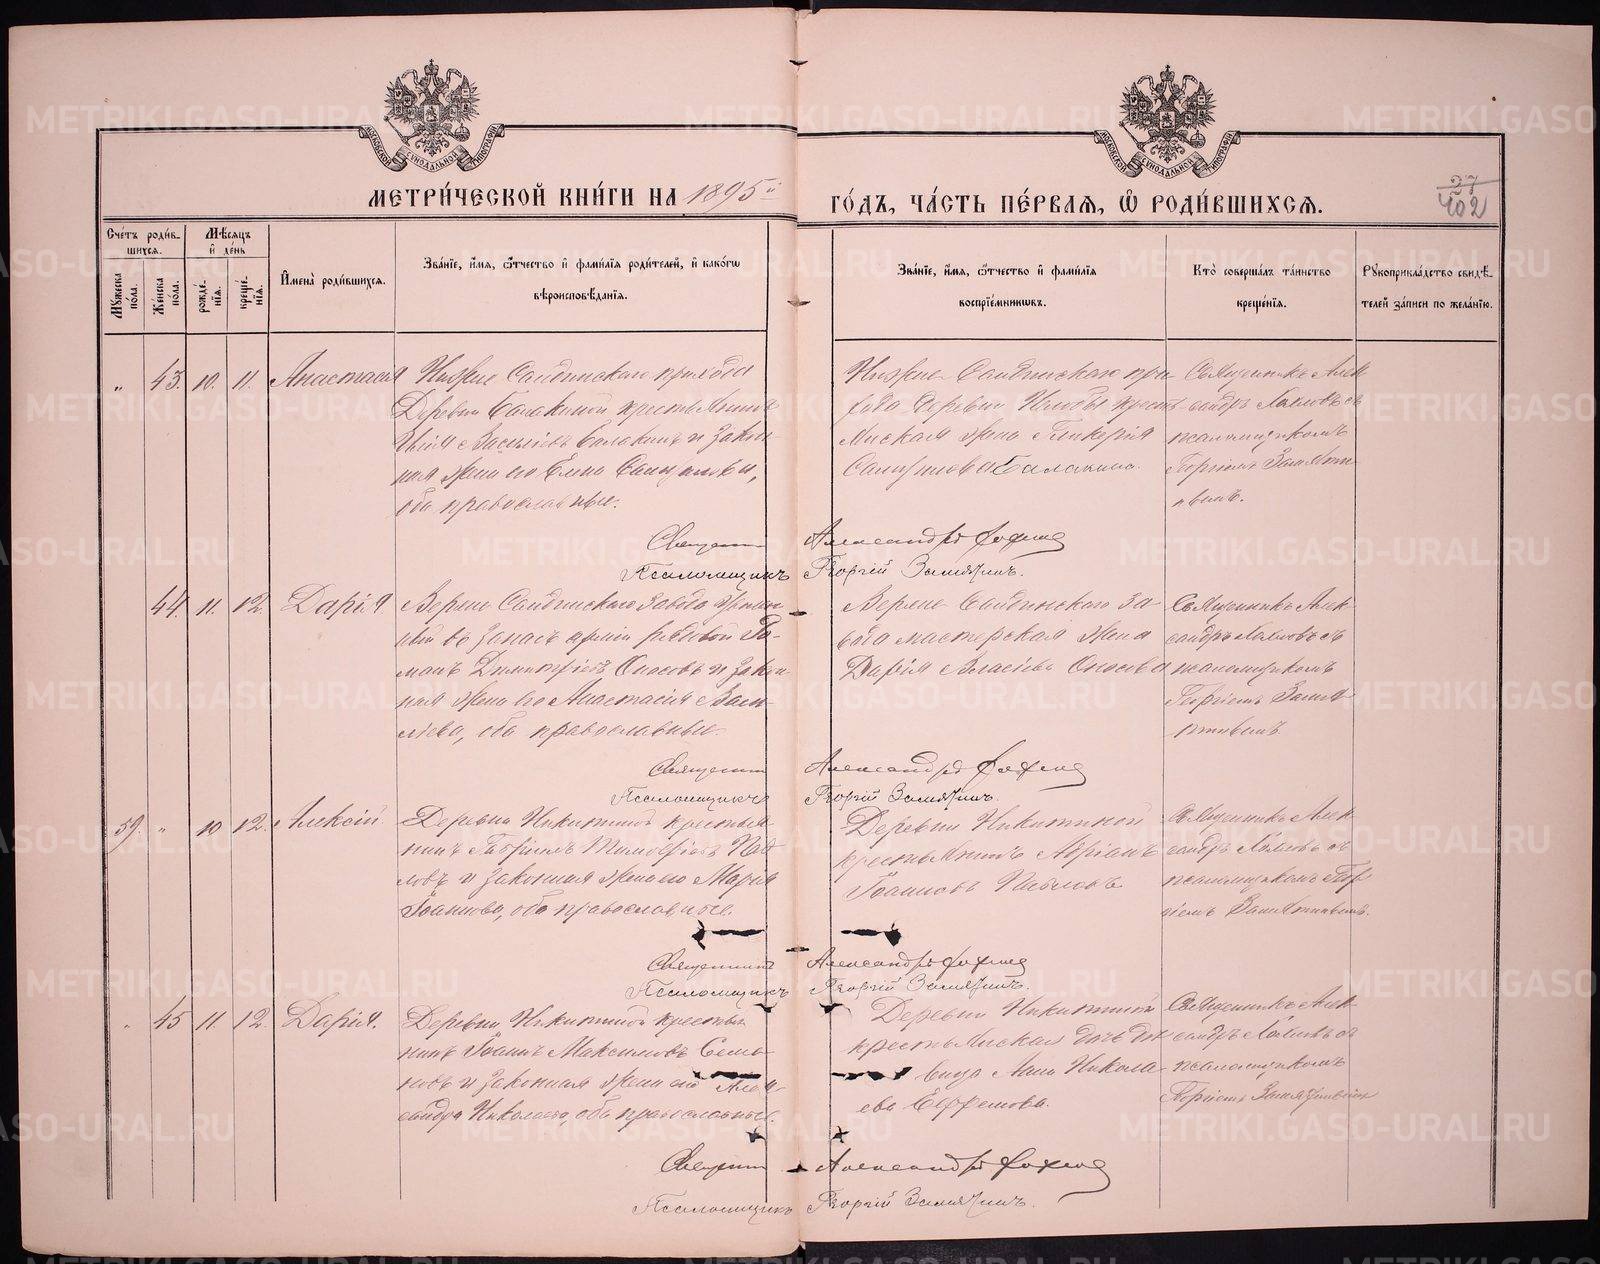 МОСКОВСКОЙ СУНОДАЛЬНОЙ ТИПОГРАФІИ
МОСКОВСКОЙ СУНОДАЛЬНОЙ ТИПОГРАФІИ
МЕТРИ́ЧЕСКОЙ КНИ́ГИ НА 1895й
ГО́ДЪ, ЧА́СТЬ ПЕ́РВАЯ, Ѡ РОДИ́ВШИХСЯ.
27
402
Сче́тъ роди́в-
шихся.
Мѣ́сяцъ
и де́нь
Му́жеска по́ла.
Же́нска по́ла.
рожде́-
нїя.
креще́-
нїя.
Имена̀ роди́вшихся.
Зва́нїе, и́мя, ѻ́тчество и фами́лїя роди́телей, и како́гѡ
вѣроисповѣ́данїя.
Зва́нїе, и́мя, ѻ́тчество и фами́лїя
воспрїе́мникѡвъ.
Кто̀ соверша́лъ та́инство
креще́нїя.
Рукоприкла́дство свидѣ́-
телей за́писи по жела́нїю.
„ 43. 10. 11. Анастасія
Нижне Салдинскаго прихода
Деревни Балакиной крестьянинъ
Васильевъ Балакинъ и закон-
ная жена его Елена
оба православные.
Нижне-Салдинскаго при-
хода деревни крестья-
нская жена Гликерія
Балакина.
Священникъ Алек-
сандръ съ
псаломщикомъ
Георгіемъ Замятни-
нымъ.
Священникъ Александръ
Псаломщикъ Георгій Замятнинъ.
44. 11. 12. Дарія
Верхне Салдинскаго завода
ный въ запасъ арміи рядовой Ро-
манъ Димитріевъ Оносовъ и закон-
ная жена его Анастасія Васи-
ліева, оба православные.
Верхне-Салдинскаго за-
вода мастерская жена
Дарія Власіева Оносова
Священникъ Алек-
сандръ съ
псаломщикомъ
Георгіемъ Замя-
тнинымъ.
Священникъ Александръ
Псаломщикъ Георгій Замятнинъ.
59. „ 10 12. Алексій
Деревни Никитиной крестья-
нинъ Гавріилъ Тимофеевъ Пав-
ловъ и законная жена его Марія
Іоаннова, оба православные.
Деревни Никитиной
крестьянинъ Адріанъ
Іоанновъ Павловъ
Священникъ Алек-
сандръ съ
псаломщикомъ Геор-
гіемъ Замятнинымъ.
Священникъ Александръ
Псаломщикъ Георгій Замятнинъ.
„ 45 11. 12. Дарія.
Деревни Никитиной крестья-
нинъ Іоаннъ Максимовъ Семе-
новъ и законная жена его Алек-
сандра Николаева, оба православные.
Деревни Никитиной
крестьянская дочь дѣ-
вица Анна Никола-
ева Ефремова.
Священникъ Алек-
сандръ съ
псаломщикомъ
Георгіемъ Замятнинымъ
Священникъ Александръ
Псаломщикъ Георгій Замятнинъ.
METRIKI.GASO-URAL.RU